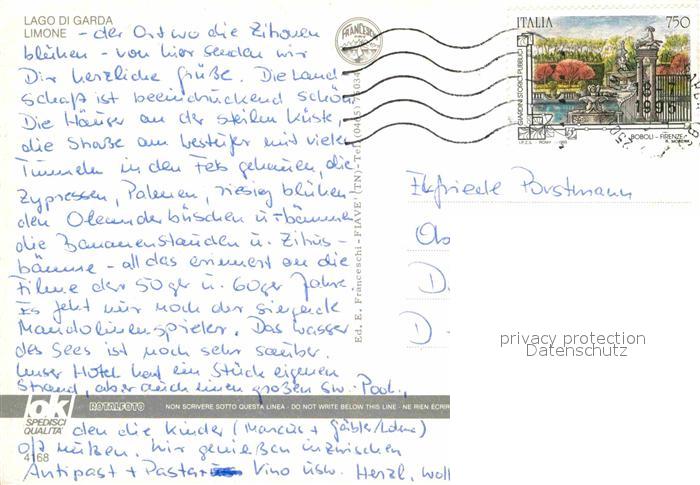 LAGO DI GARDA
LIMONE - der Ort wo die Zitronen
blühen - von hier senden wir
Dir herzliche Grüße. Die Land-
schaft ist beeindruckend schön
Die Häuser an der steilen Küste,
die Straße am Westufer mit vielen
Tunneln in den Fels gehauen, die
Zypressen, Palmen, riesig blühen-
den Oleanderbüschen u -bäumen
die Bananenstauden u. Zitrus-
bäume - all das erinnert an die
Filme der 50ger u. 60ger Jahre.
Es fehlt nur noch der singende
Mandolinenspieler. Das Wasser
des Sees ist noch sehr sauber.
Unser Hotel hat ein Stück eigenen
Strand, aber auch einen großen Sw.-Pool,
den die Kinder (Marcus +
oft nützen. Wir genießen inzwischen
Antipast + Pasta Vino usw. Herzl.
ok
SPEDISCI
QUALITÀ
ROTALFOTO
NON SCRIVERE SOTTO QUESTA LINEA - DO NOT WRITE BELOW THIS LINE - NE RIEN ÉCRIR
4168
Ed. E. Franceschi - FIAVE' (TN) - Tel.
FRANCESCHI
ITALIA 750
GIARDINI STORICI PUBBLICI
BOBOLI - FIRENZE
I.P.Z.S. ROMA
1995
Elfriede Borstmann
D.
D -
privacy protection
Datenschutz